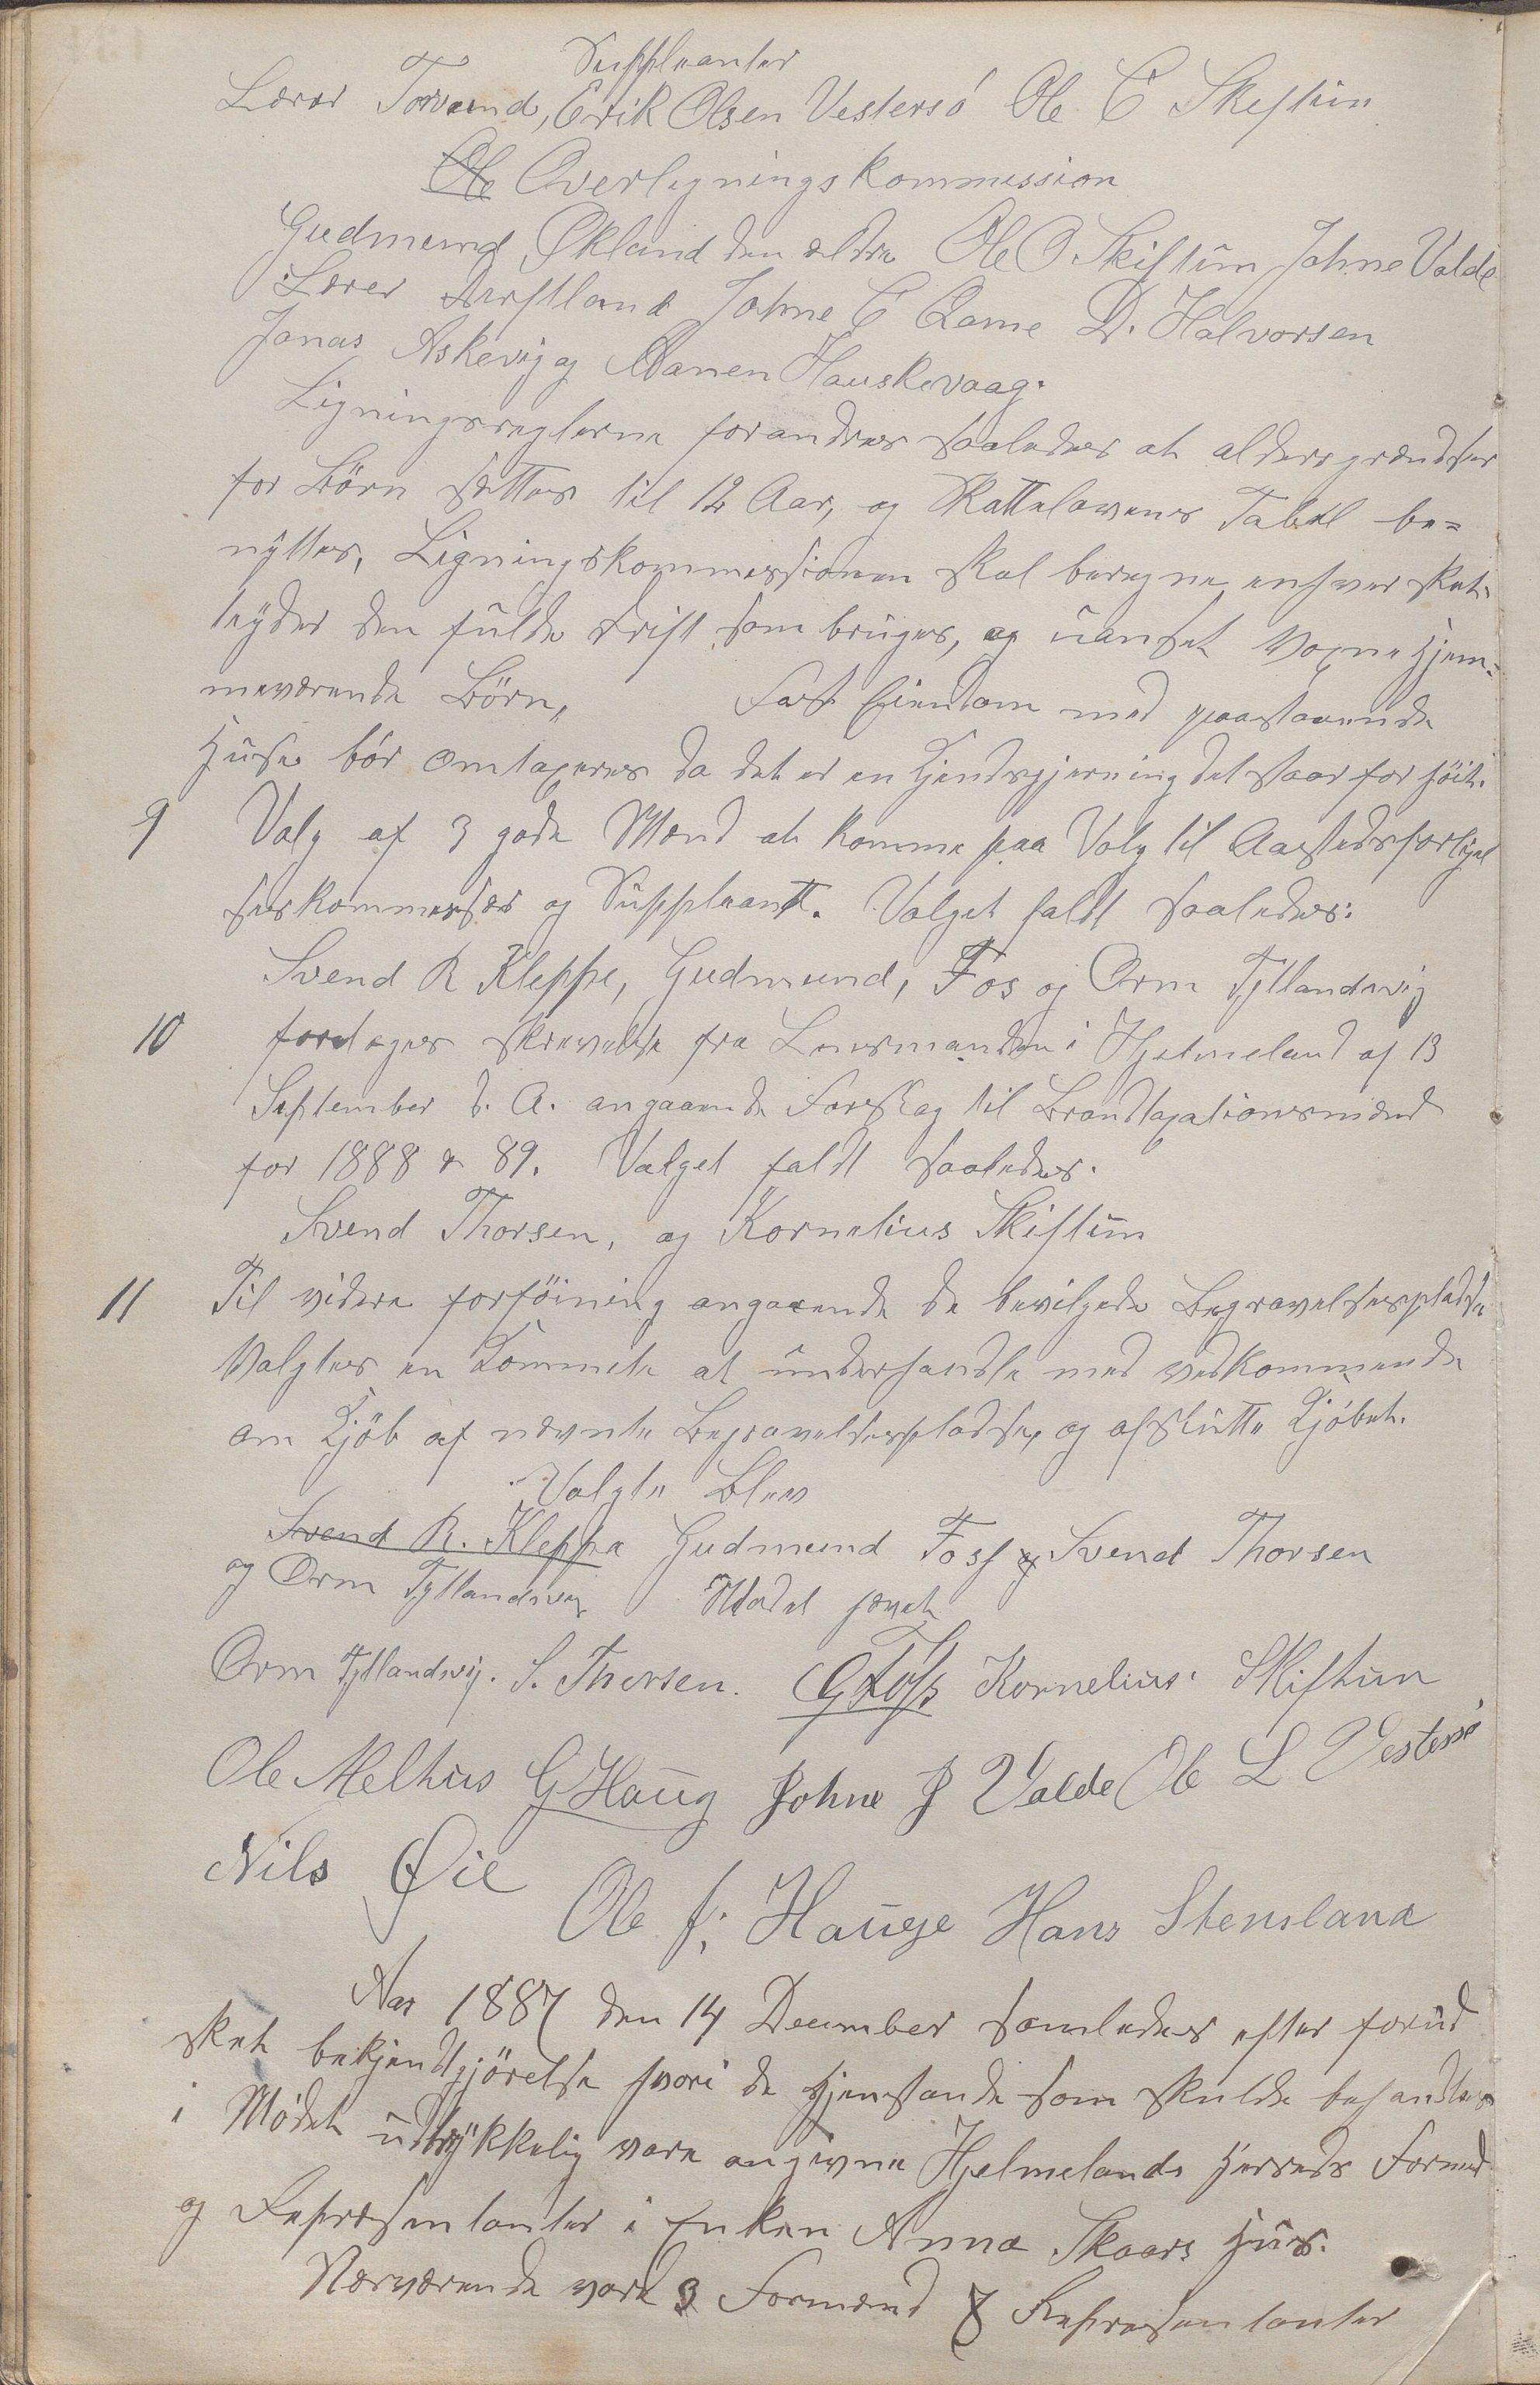 Suppleanter
Lærer Torsend, Erik Olsen Vestersö Ole C Skiftun
Ole Overligningskommission
Gudmund Økland den ældre Ole O Skiftun Johne Valde
Lærer Johne C Rame D. Halvorsen
Jonas Askevig og Aanen Hauskevaag.
Ligningsreglerne forandres saaledes at aldersgrændser
for Börn sættes til 12 Aar, og Skattelovens Tabel be=
nyttes, Ligningskommissionen skal beregne enhver skat-
teyder den fulde Drift som bruges, og uanset voxne hjem-
meværende Börn, Fast Eiendom med paastaaende
Huse bör omtaxeres da det er en Kjendsgjerning det staar for höit.
9 Valg af 3 gode Mænd at komme paa Valg til Aastedsforligel
seskommissær og Suppleant. Valget faldt saaledes:
Svend R Kleppe, Gudmund, Fos og Orm Tytlandsvig
10 fordroges skrivelse fra Lensmanden i Hjelmeland af 13
September d. A. angaaende Forslag til Brandtaxationsmænd
for 1888 & 89. Valget faldt saaledes.
Svend Thorsen, og Kornelius Skiftun
11 Til videre forföining angaaende de bevilgede Begravelsespladse
Valgtes en Kommite at underhandle med vedkommende
om Kjöb af nævnte Begravelsespladse, og afslutte Kjöbet.
Valgte Blev
Svend R. Kleppa Gudmund Foss & Svend Thorsen
og Orm Tytlandsvig Mödet hævet
Orm Tytlandsvig. S. Thorsen. G Foss Kornelius Skiftun
Ole Melhus G Haug Johne J Valde Ole L Vestersö
Nils Øie
Ole J. Hauge Hans Stensland
Aar 1887 den 14 December samledes efter forud
sket bekjendtgjörelse hvori de Gjenstande som skulde behandles
i Mödet udtrykkelig vare angivne Hjelmelands Herreds Formænd
og Repræsentanter i Enken Anna Skaars Hus.
Nærværende vare 3 Formænd 8 Repræsentanter